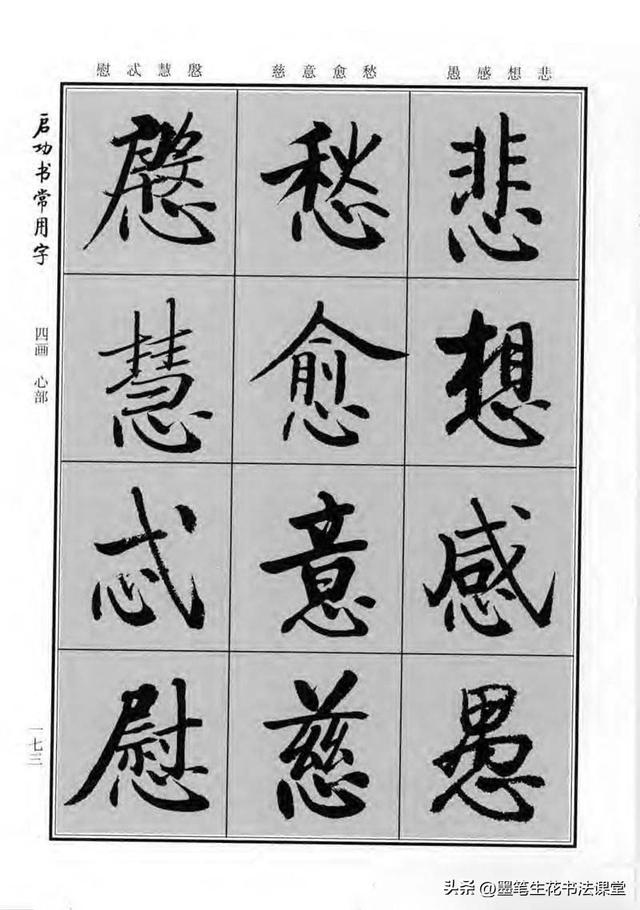 悲想感愚
愁愈意慈
慇慧忒慰
悲
想
感
愚
愁
愈
意
慈
慇
慧
忒
慰
启功书常用字
四画 心部
一七三
头条 @墨笔生花书法课堂